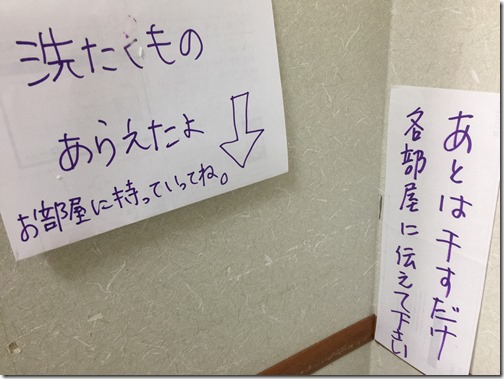 洗たくもの
あらえたよ
お部屋に持っていってね。
あとは干すだけ
各部屋に伝えて下さい